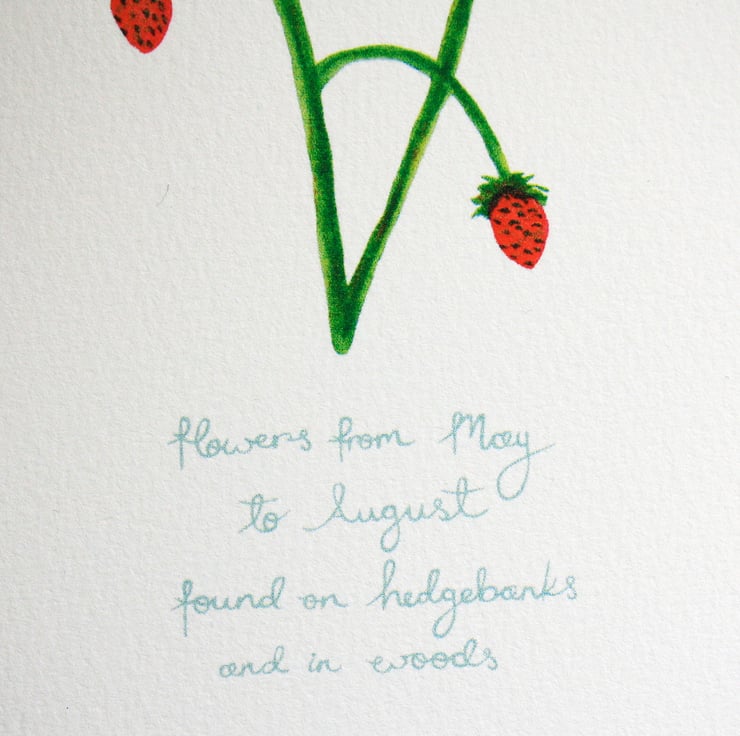 flowers from May
to August
found on hedgebanks
and in woods